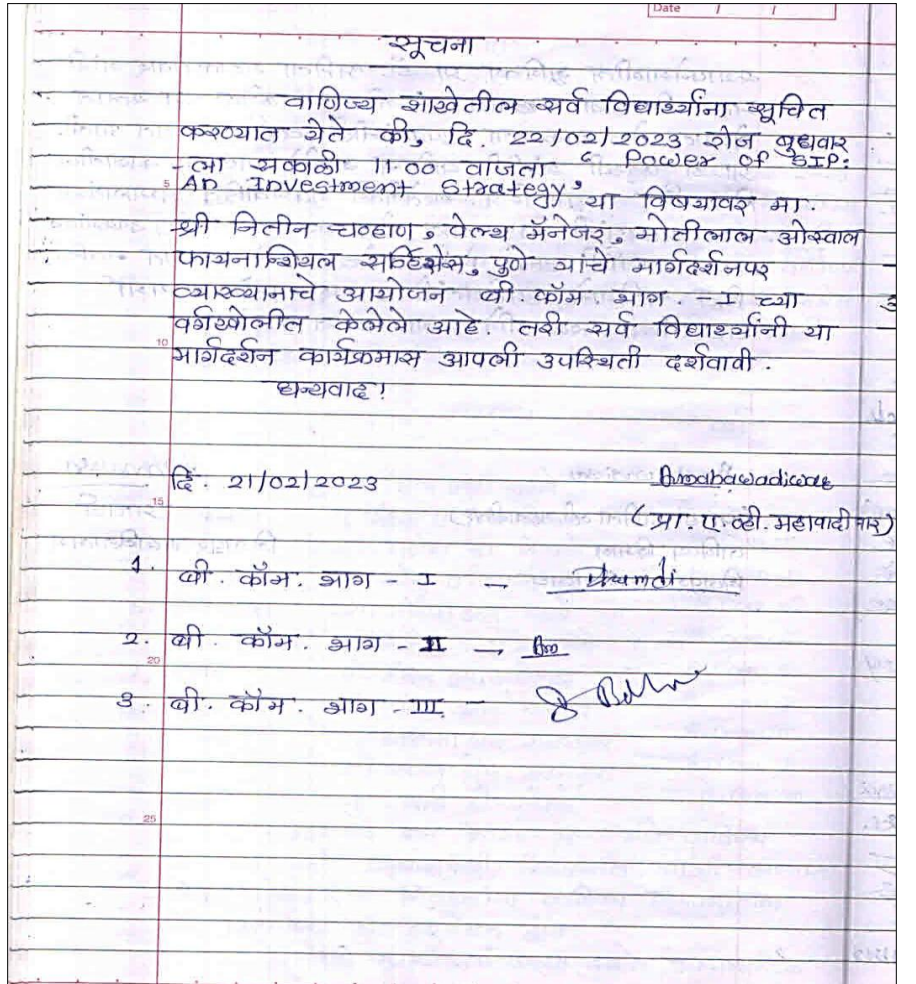 Date / /
सूचना
वाणिज्य शाखेतील सर्व विद्यार्थ्यांना सूचित
करण्यात येते की, दि. 22/02/2023 रोज बुधवार
-ला सकाळी 11.00 वाजता "Power of SIP:
5
An Investment Strategy" या विषयावर मा.
श्री नितीन चव्हाण, वेल्थ मॅनेजर, मोतीलाल ओस्वाल
फायनान्शियल सर्व्हिसेस, पुणे यांचे मार्गदर्शनपर
व्याख्यानाचे आयोजन बी कॉम भाग - I च्या
वर्गखोलीत केलेले आहे. तरी सर्व विद्यार्थ्यांनी या
10
मार्गदर्शन कार्यक्रमास आपली उपस्थिती दर्शवावी.
धन्यवाद!
दि. 21/02/2023
15
(प्रा. ए. व्ही. महाबादीवार)
1. बी. कॉम. भाग - I -
2. बी. कॉम. भाग - II -
20
3. बी. कॉम. भाग - III -
25